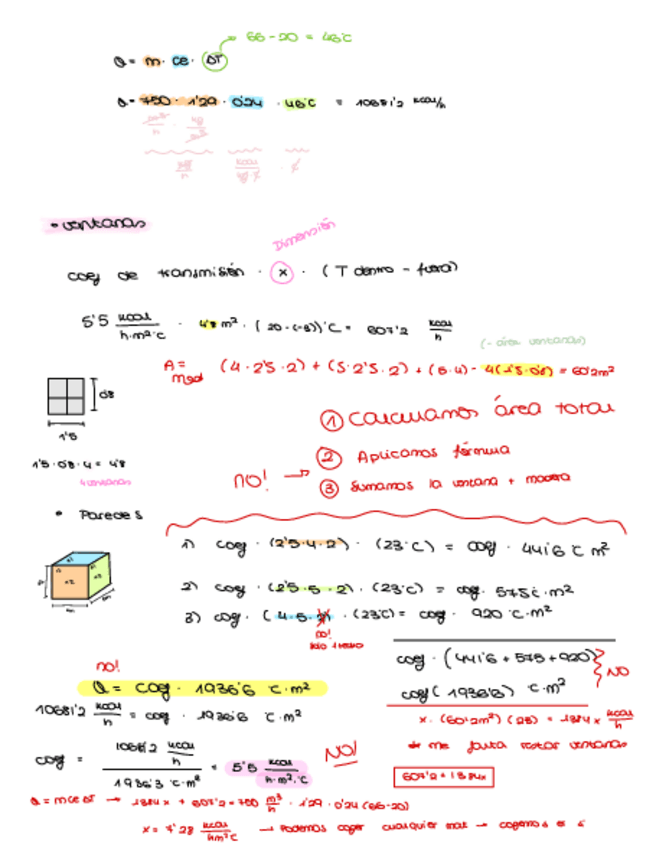 66-20 = 46°C
Q = m · ce · ΔT
Q = 750 · 1'29 · 0'24 · 46°C = 10681'2 kcal/h
m³/h · kg/m³
kg/h kcal/
• ventanas
Dimensión
coef de transmisión · x · (T dentro - fuera)
5'5 kcal/h·m²·c · 4'8 m² · (20-(-3))°C = 607'2 kcal/h
(- área ventanas)
A = mad (4 · 2'5 · 2) + (5 · 2'5 · 2) + (5·4) - 4(1'5·0'8) = 60'2m²
0'8
1'5
① calculamos área total
② Aplicamos fórmula
NO! → ③ Sumamos la ventana + madera
1'5 · 0'8 · 4 = 4'8
4 ventanas
• Paredes
1) coef · (2'5·4·2) · (23°C) = coef · 441'6 °C m²
2) coef · (2'5·5·2) · (23°C) = coef · 575°C·m²
3) coef · (4·5·2) · (23°C) = coef · 920 °C·m²
no!
sólo 1 techo
coef · (441'6 + 575 + 920)
NO
coef (1936'6) °C·m²
no!
Q = coef · 1936'6 °C·m²
10681'2 kcal/h = coef · 1936'6 °C·m²
x · (60'2m²) (23) = 1384x kcal/h
* me falta restar ventanas
coef = 10681'2 kcal/h / 1936'3 °C·m² = 5'5 kcal/h·m²·°C NO!
607'2 + 1384x
Q = m ce ΔT → 1384x + 607'2 = 750 m³/h · 1'29 · 0'24 (66-20)
x = 7'28 kcal/hm²c → Podemos coger cualquier mat → cogemos el